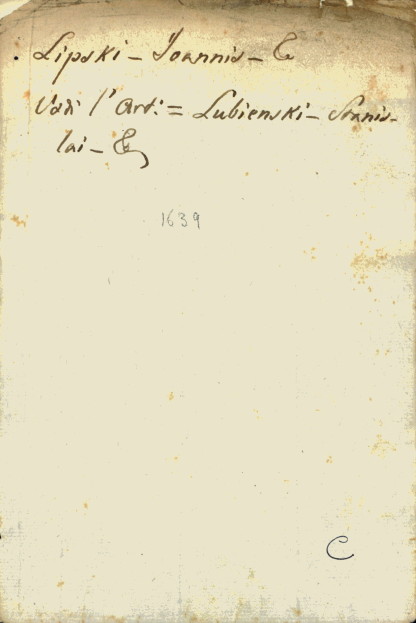 . Lipski - Joannis - E
Vedi l'Art: = Lubienski - Stanis-
lai - E
1639
C